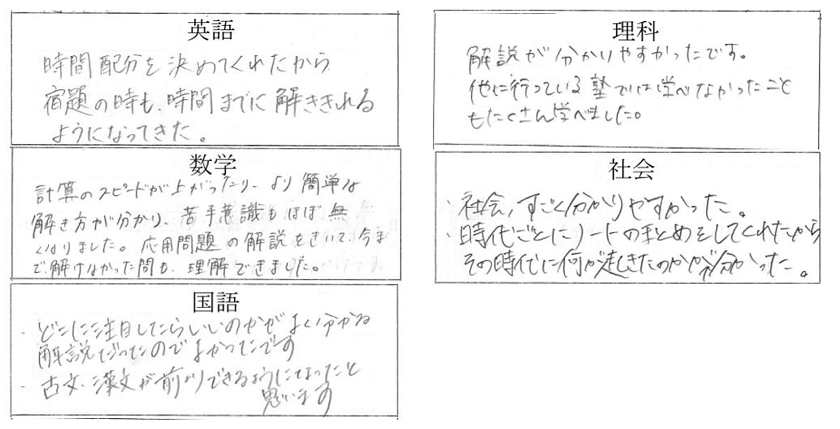 英語
時間配分を決めてくれたから
宿題の時も、時間までに解ききれる
ようになってきた。
数学
計算のスピードが上がったり、より簡単な
解き方が分かり、苦手意識もほぼ無
くなりました。応用問題の解説をきいて、今ま
で解けなかった問も、理解できました。
国語
・どこに注目したらいいのかがよく分かる
解説だったのでよかったです
・古文・漢文が前よりできるようになったと
思います
理科
解説が分かりやすかったです。
他に行っている塾では学べなかったこと
もたくさん学べました。
社会
・社会、すごく分かりやすかった。
・時代ごとにノートのまとめをしてくれたから
その時代に何が起きたのかが分かった。